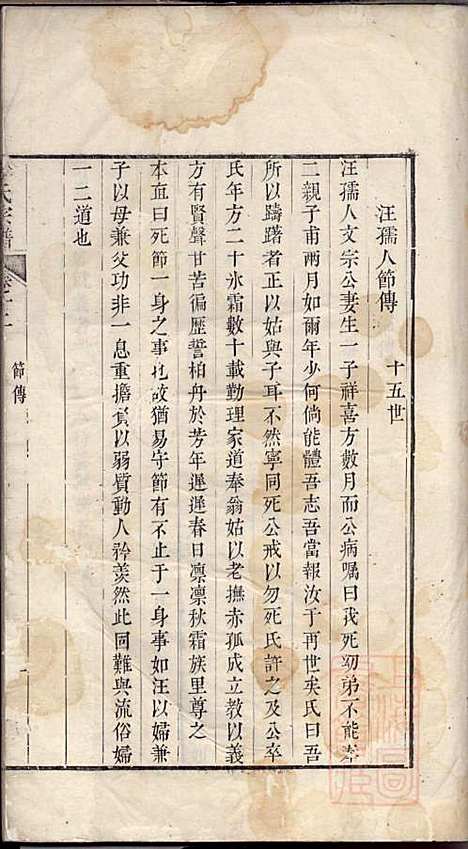 汪孺人節傳
十五世
汪孺人文宗公妻生一子祥喜方數月而公病嘱曰我死幼弟不能奉
二親子甫兩月如爾年少何倘能體吾志吾當報汝于再世矣氏曰吾
所以躊躇者正以姑與子耳不然寧同死公戒以勿死氏許之及公卒
氏年方二十氷霜數十載勤理家道奉翁姑以老撫赤孤成立教以義
方有賢聲甘苦徧歷誓柏舟於芳年遲遲春日凛凛秋霜族里尊之
本血曰死節一身之事也故猶易守節有不止于一身事如汪以婦兼
子以母兼父功非一息重擔負以弱質動人矜羨然此回難與流俗婦
一二道也
氏宗譜
節傳